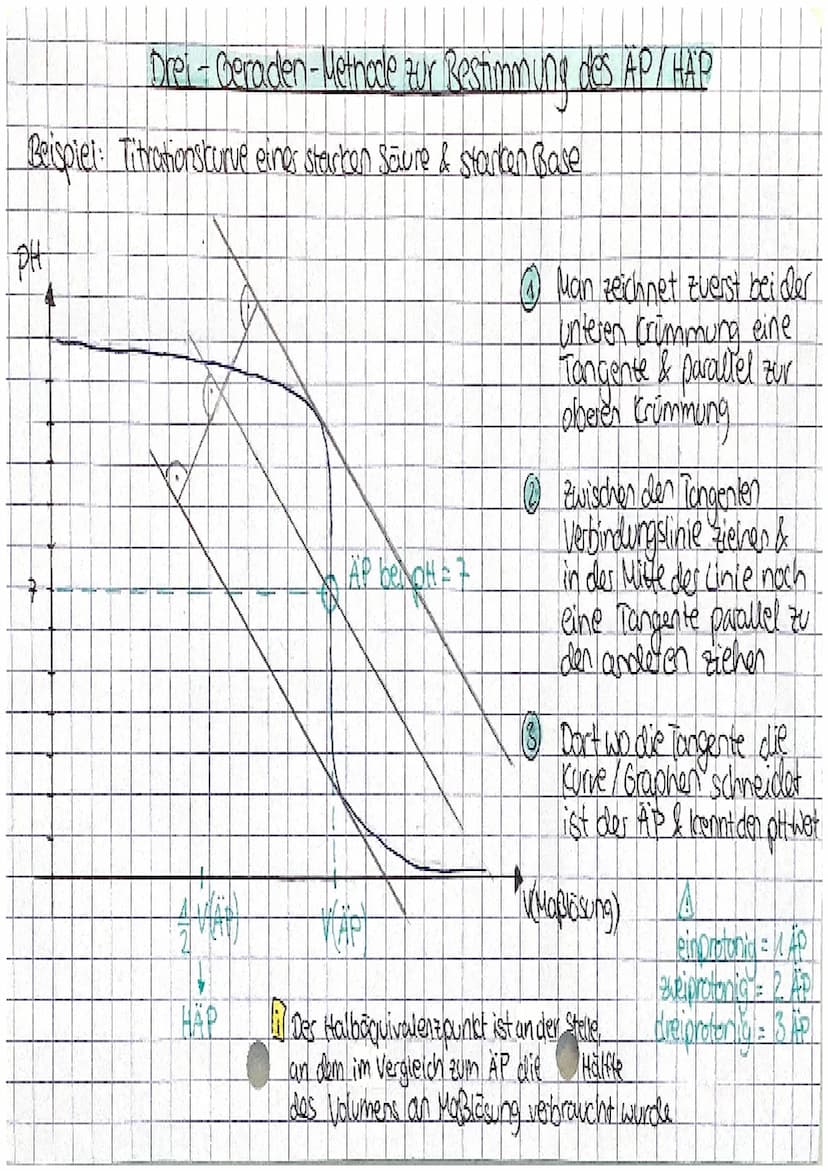 Drei-Geraden-Methode zur Bestimmung des ÄP/HÄP
Beispiel: Titrationskurve einer starken Säure & starken Base
pH
① Man zeichnet zuerst bei der
unteren Krümmung eine
Tangente & parallel zur
oberen Krümmung
② zwischen den Tangenten
Verbindungslinie ziehen &
in der Mitte der Linie noch
eine Tangente parallel zu
den anderen ziehen
7
ÄP bei pH = 7
③ Dort wo die Tangente die
Kurve/Graphen schneidet
ist der ÄP & kennt den pH-Wert
V(Maßlösung)
1/2 V(ÄP)
V(ÄP)
HÄP
einprotonig = 1 ÄP
zweiprotonig = 2 ÄP
dreiprotonig = 3 ÄP
i Der Halbäquivalenzpunkt ist an der Stelle,
an dem im Vergleich zum ÄP die Hälfte
des Volumens an Maßlösung verbraucht wurde